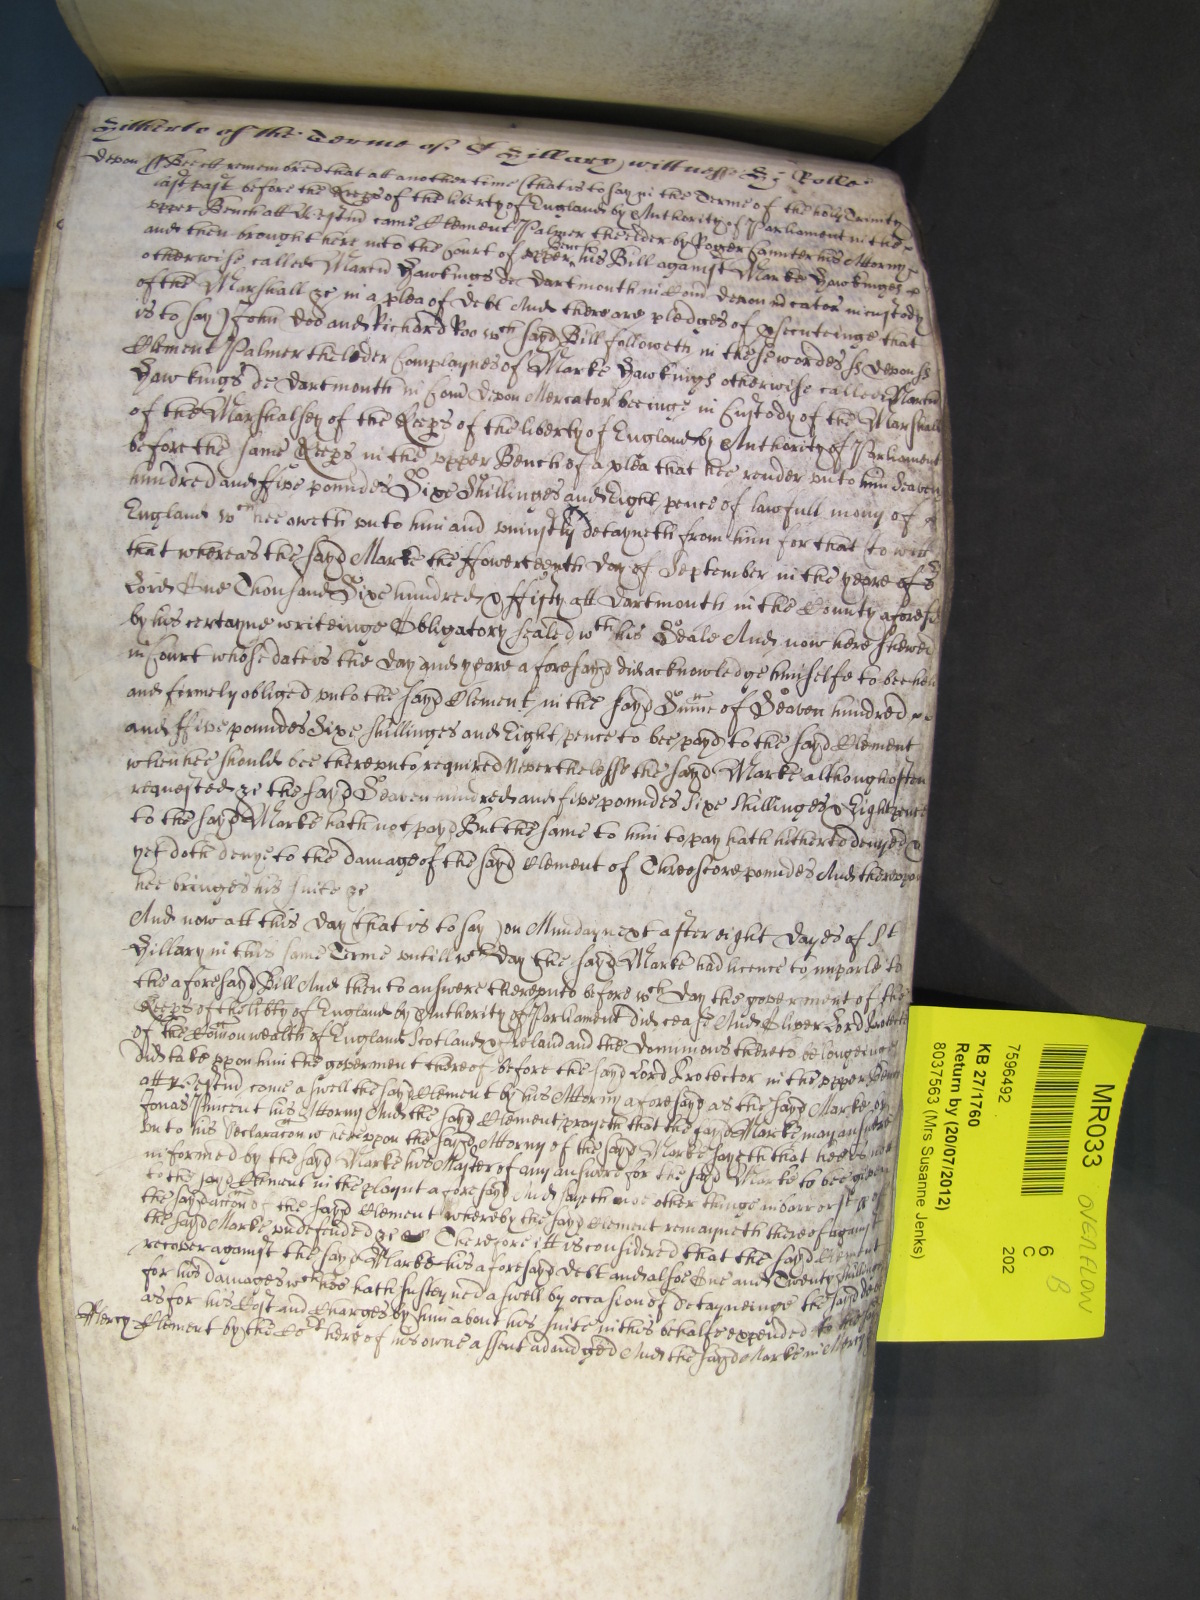 Hitherto of the Terme of St Hillary wittnesse Hy Rolle
Devon ss Bee itt remembred that att another time (that is to say in the Terme of the holy Trinity
last past before the Keeps of the liberty of England by Authority of Parliament in the
vpper Bench att Westmr came Clement Palmer the elder by Roger Caunter his Attorny
and then brought here into the Court of vpper Bench his Bill against Marke Hawkings
otherwise called Martin Hawkings de Dartmouth in Com Devon mcator in custody
of the Marshall &c in a plea of debt And there are pledges of psecuteinge that
is to say) John Doo and Richard Roo wch sayd Bill followeth in these wordes ss Devon ss
Clement Palmer the elder Complaynes of Marke Hawkings otherwise called Martin
Hawkings de Dartmouth in Com Devon Mercator beeinge in Custody of the Marshall
of the Marshalsey of the Keeps of the liberty of England by Authority of Parliament
before the same Keeps in the vpper Bench of a plea that hee render vnto him Seaven
hundred and ffive poundes Sixe Shillinges and Eight pence of lawfull mony of
England wch hee oweth vnto him and vniustly detayneth from him for that (to witt
that whereas the sayd Marke the ffowerteenth day of September in the yeare of
Lord One Thousand Sixe hundred & ffifty att Dartmouth in the County aforesd
by his certayne writeinge Obligatory sealed wth his Seale And now here shewed
in Court whose date is the day and yeare aforesayd did acknowledge himselfe to bee held
and firmely obliged vnto the sayd Clement in the sayd Summe of Seaven hundred
and ffive poundes Sixe shillinges and Eight pence to bee payd to the sayd Clement
when hee should bee therevnto required Neverthelesse the sayd Marke although often
requested &c the sayd Seaven hundred and five poundes sixe shillinges & Eight pence
to the sayd Marke hath not payd But the same to him to pay hath hitherto denyed &
yet doth denye to the damage of the sayd Clement of Threescore poundes And therevpon
hee bringes his suite &c
And now att this day (that is to say) on Munday next after eight dayes of St
Hillary in this same Terme vntill wch day the sayd Marke had licence to imparle to
the aforesayd Bill And then to answere therevnto before wch day the goverment of the
Keeps of the libty of England by Authority of Parliament did cease And Oliver Lord Protector
of the Comonwealth of England Scotland & Ireland and the dominions thereto belongeinge
did take vpon him the goverment thereof before the sayd Lord Protector in the vpper Bench
att Westmr come aswell the sayd Clement by his Attorny aforesayd as the sayd Marke by
Jonas Vincent his Attorny And the sayd Clement prayeth that the sayd Marke may answere
vnto his declaracon wherevpon the sayd Attorny of the sayd Marke sayeth that hee is not
informed by the sayd Marke his Master of any answere for the sayd Marke to bee given
to the sayd Clement in the playnt aforesayd And sayeth noe other thinge in barr or
the sayd accon of the sayd Clement whereby the sayd Clement remayneth thereof against
the sayd Marke vndefended &c Therefore itt is considered that the sayd Clement
recover against the sayd Marke his aforesayd debt and alsoe One and Twenty shillings
for his damages wch hee hath susteyned aswell by occasion of detayneinge the sayd debt
as for his Cost and Charges by him about his suite in this behalfe expended to the sayd
Mercy Clement by the Cort here of his owne assent adiudged And the sayd Marke in Mercy
MR033
OVERFLOW
B
6
C
202
7596492
KB 27/1760
Return by (20/07/2012)
8037563 (Mrs Susanne Jenks)